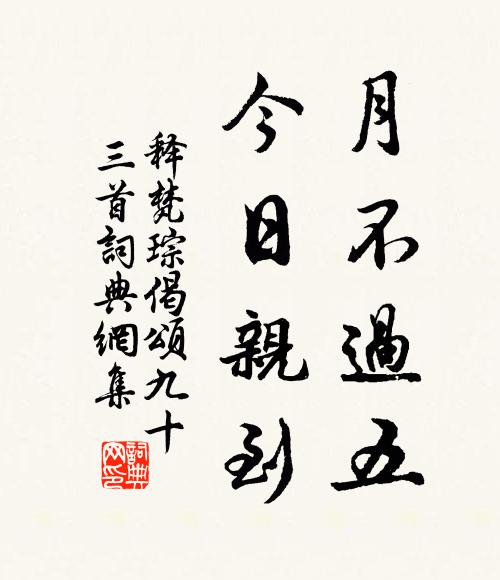 月不過五
今日親到
释梵琮偈頌九十
三首詞典網集
詞典
网印